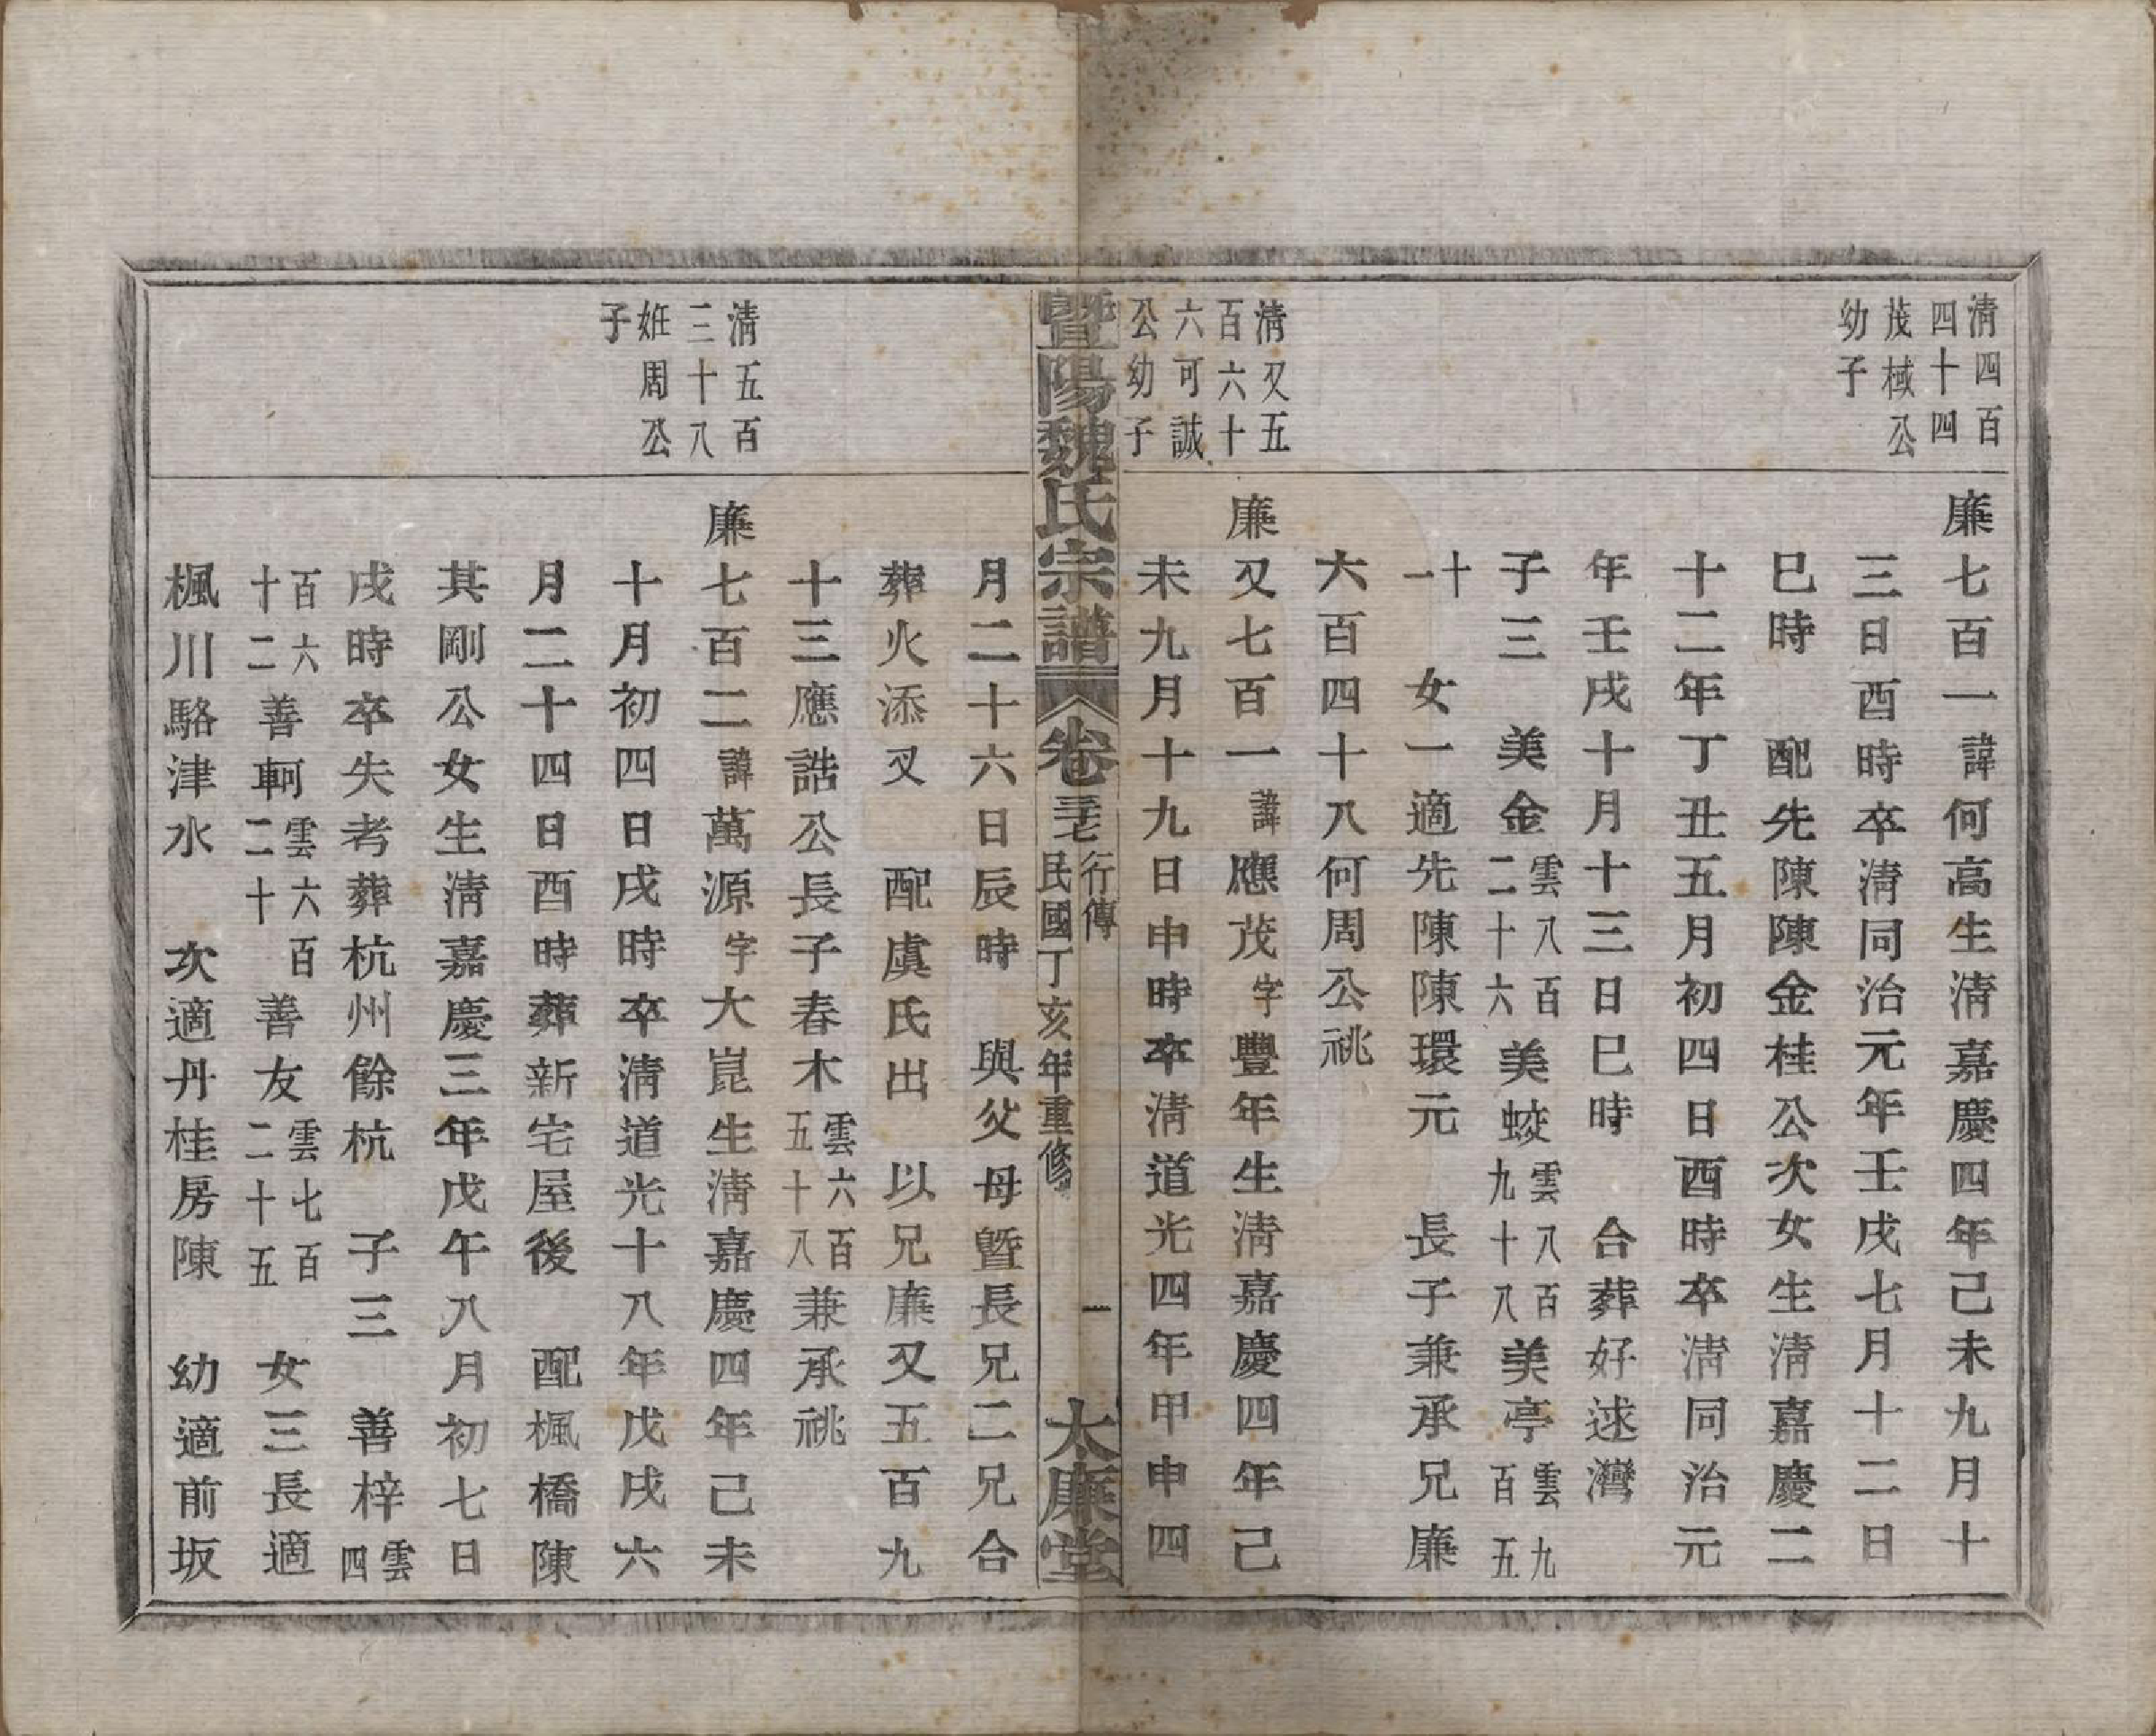 清四百
四十四
茂棫公
幼子
廉七百一諱何高生清嘉慶四年己未九月十
三日酉時卒清同治元年壬戌七月十二日
巳時　配先陳陳金桂公次女生清嘉慶二
十二年丁丑五月初四日酉時卒清同治元
年壬戌十月十三日巳時　合葬好逑灣
子三　美金雲八百二十六美蛟雲八百九十八美亭雲九百五
十一　女一適先陳陳環元　長子兼承兄廉
六百四十八何周公祧
清又五
百六十
六可誠
公幼子
廉又七百一諱應茂字豐年生清嘉慶四年己
未九月十九日申時卒清道光四年甲申四
暨陽魏氏宗譜
卷三七
行傳
民國丁亥年重修
一
大廉堂
月二十六日辰時　與父母暨長兄二兄合
葬火添叉　配虞氏出　以兄廉又五百九
十三應誥公長子春木雲六百五十八兼承祧
清五百
三十八
姙周公
子
廉七百二諱萬源字大崑生清嘉慶四年己未
十月初四日戌時卒清道光十八年戊戌六
月二十四日酉時葬新宅屋後　配楓橋陳
其剛公女生清嘉慶三年戊午八月初七日
戌時卒失考葬杭州餘杭　子三　善梓雲四
百六十二善軻雲六百二十善友雲七百二十五　女三長適
楓川駱津水　次適丹桂房陳　幼適前坂